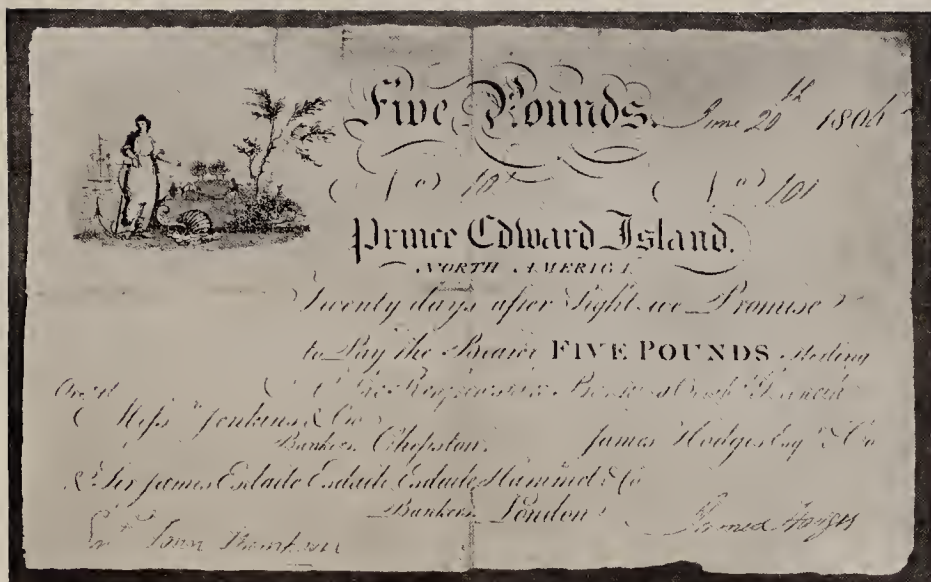 Five Pounds. June 20th 1804
No 101 No 101
Prince Edward Island.
NORTH AMERICA
Twenty days after Sight we Promise
to Pay the Bearer FIVE POUNDS Sterling
Messrs Jenkins & Co
Bankers Chepstow. James Hodges Esqr & Co
& Sir James Esdaile Esdaile Esdaile Hammet & Co
Bankers London.
Entd James Hodges